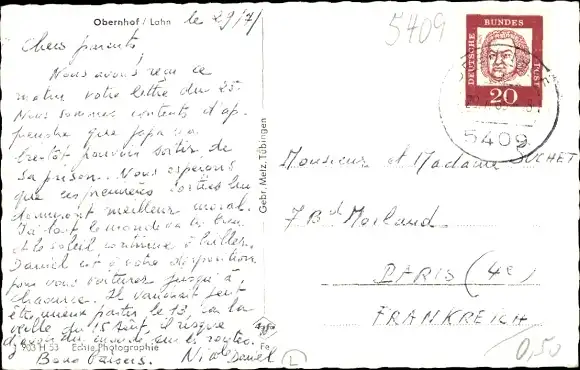 Obernhof / Lahn
le 29/7/
5409
Chers parents,
Nous avons reçu ce
matin votre lettre du 25.
Nous sommes contents d'ap-
prendre que papa va
bientôt pouvoir sortir de
sa prison. Nous espérons
que ces premières sorties lui
donneront meilleur moral.
Ici tout le monde va bien
et le soleil continue à briller.
Daniel est à votre disposition
pour vous voiturer jusqu'à
Chaource. Il vaudrait peut
être mieux partir le 13, car la
veille du 15 Août, il risque
d'avoir du monde sur les routes.
Bons baisers. Nicole Daniel
903 H 53 Echte Photographie
Fe
L
Gebr. Metz, Tübingen
DEUTSCHE BUNDES POST
20
5409
Monsieur et Madame SUCHET
7 Bd Morland
PARIS (4e)
FRANKREICH
0,50